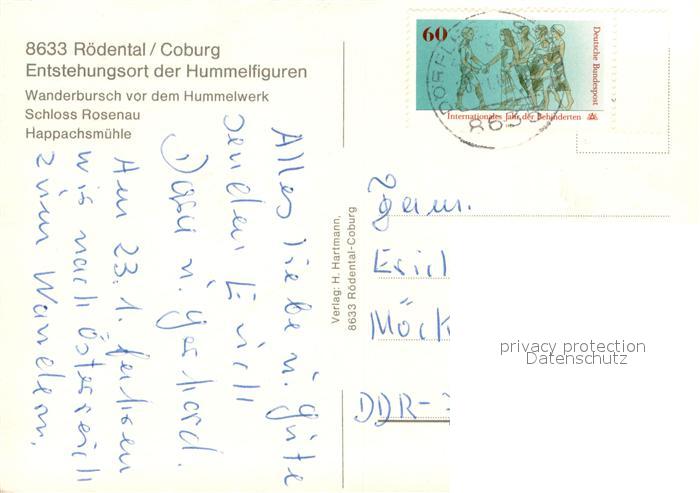 8633 Rödental / Coburg
Entstehungsort der Hummelfiguren
Wanderbursch vor dem Hummelwerk
Schloss Rosenau
Happachsmühle
Alles Liebe u. Gute
senden Erich
Dora u. Gerhard.
Am 23. 1. fahren
wir nach Österreich
zum Wandern.
Verlag: H. Hartmann,
8633 Rödental-Coburg
60
Deutsche Bundespost
Internationales Jahr der Behinderten
863
Fam.
Erich
Möck
DDR-
privacy protection
Datenschutz